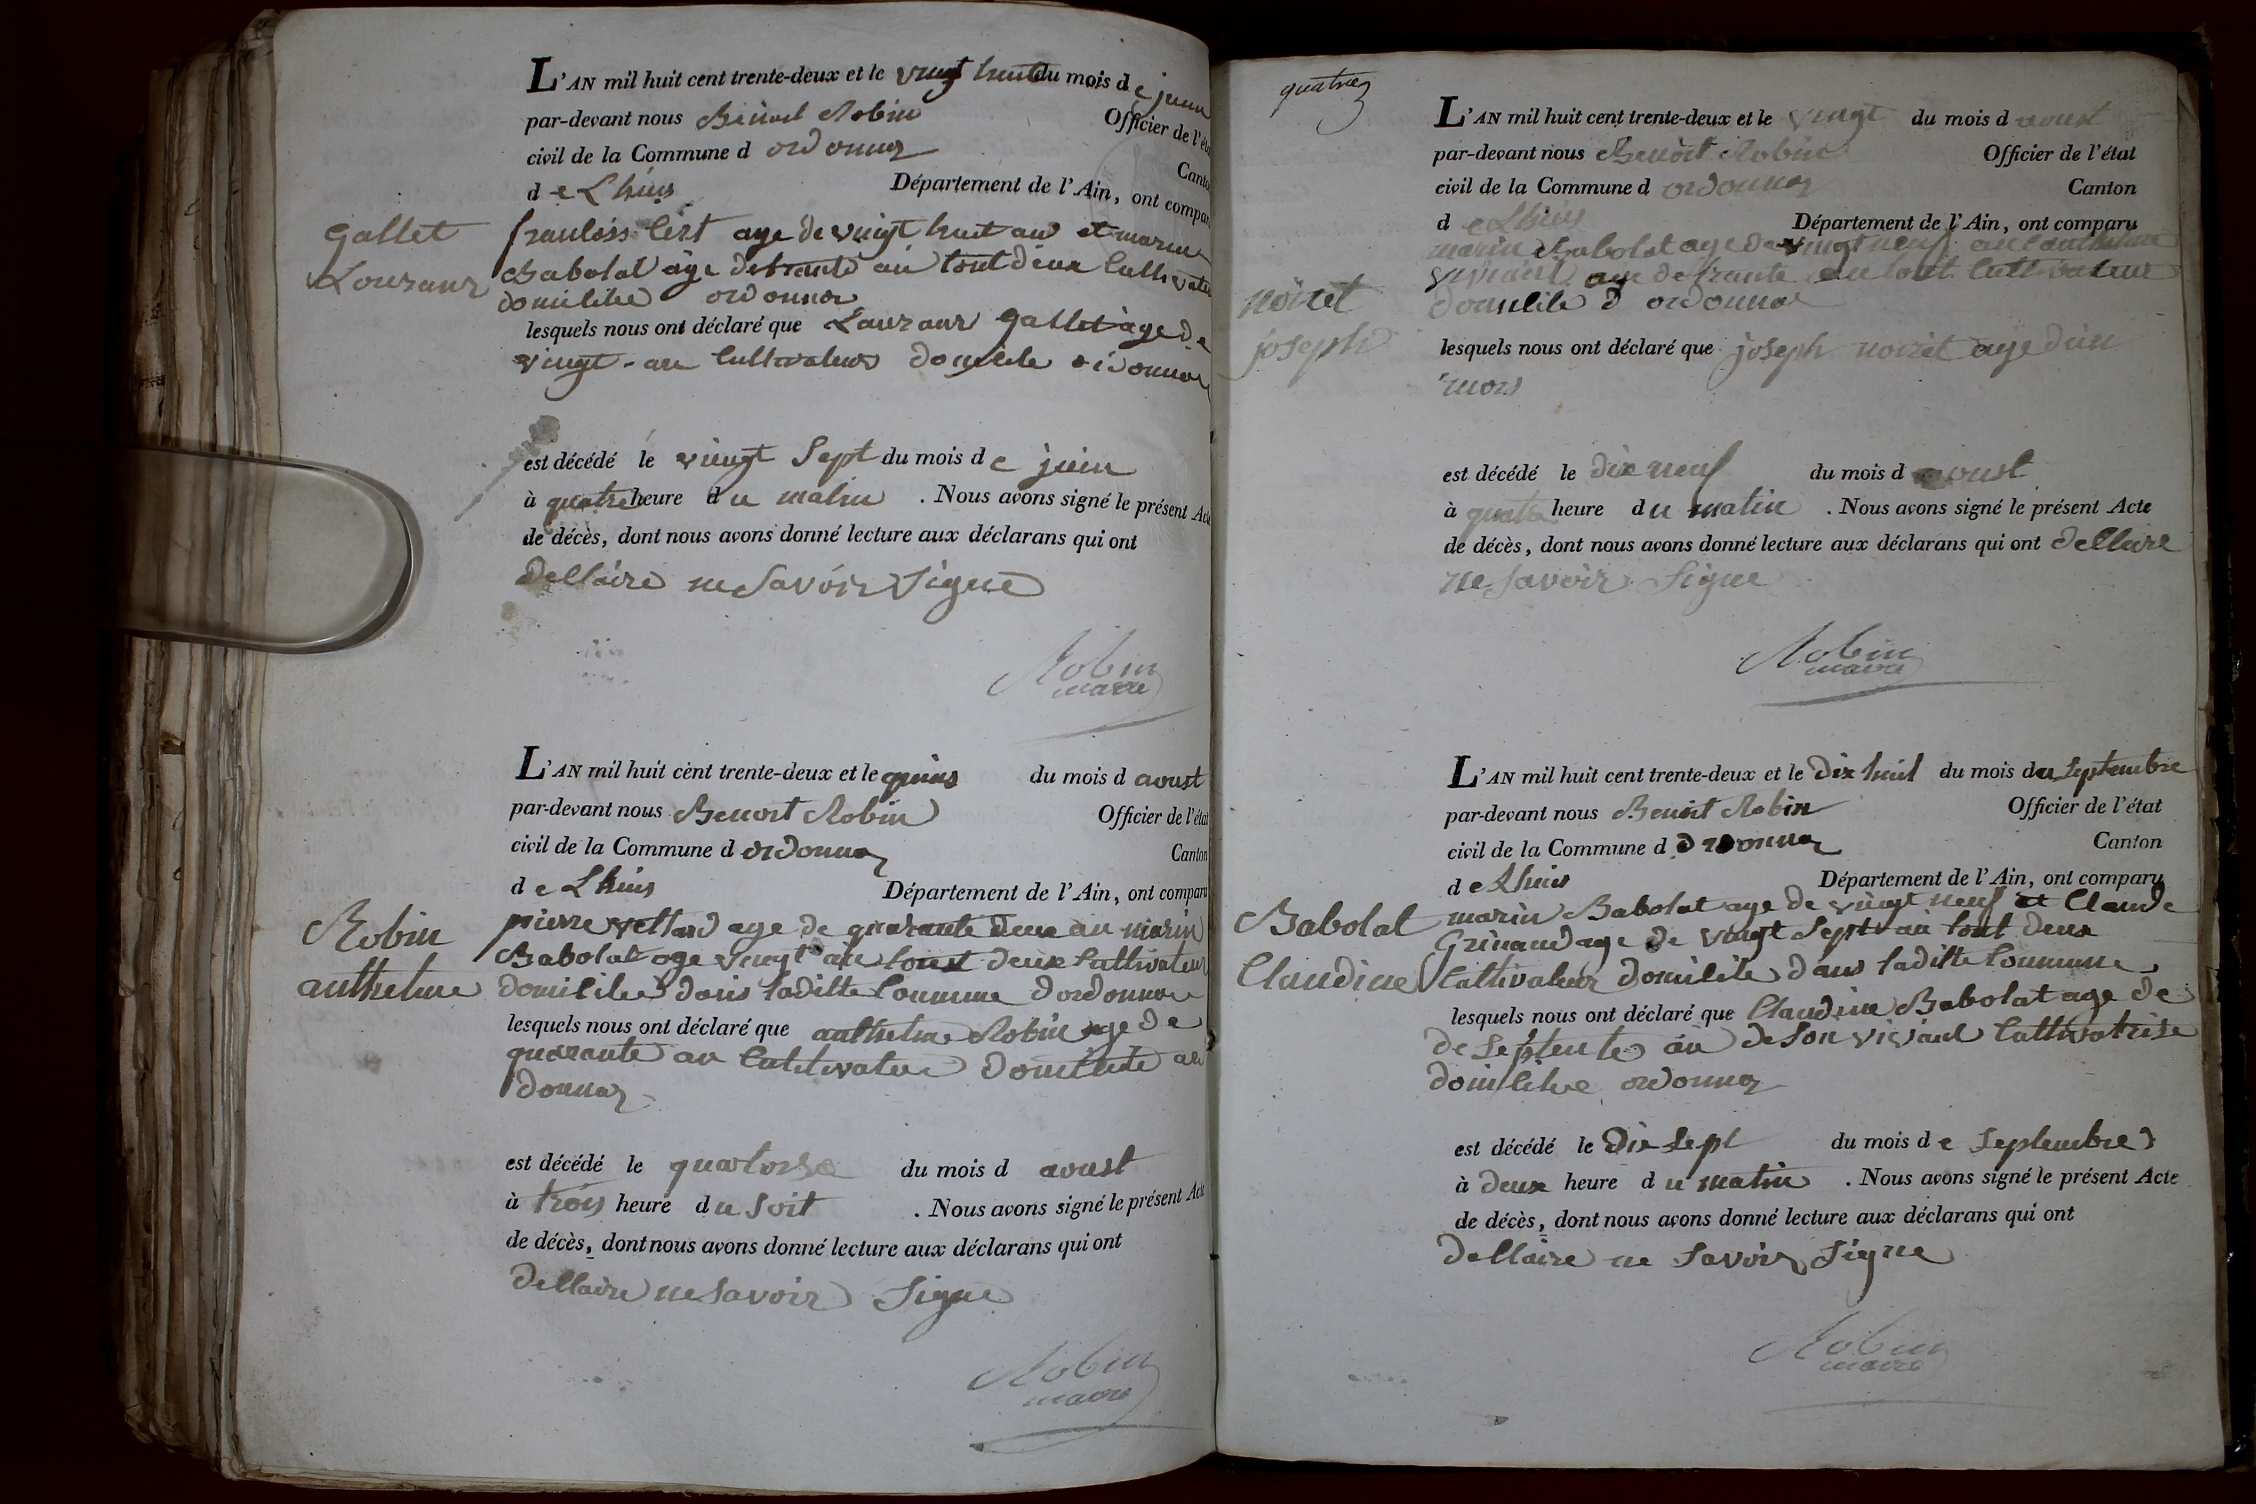 L'AN mil huit cent trente-deux et le vingt huit du mois de juin
par-devant nous Benoit Robin Officier de l'état
civil de la Commune d ordonnaz Canton
de Lhuis Département de l'Ain, ont comparu
Gallet
Lourans
age de vingt huit an et marin
Babolat age de trante an tout deux Cultivateu
domicilie ordonnaz
lesquels nous ont déclaré que Lourans Gallet age de
vingt an Cultivateur domicile ordonnaz
est décédé le vingt Sept du mois de juin
à quatre heure du matin . Nous avons signé le présent Acte
de décès, dont nous avons donné lecture aux déclarans qui ont
dellaire ne Savoir Signe
Robin
maire
L'AN mil huit cent trente-deux et le quins du mois d aoust
par-devant nous Benoit Robin Officier de l'état
civil de la Commune d ordonnaz Canton
de Lhuis Département de l'Ain, ont comparu
Robin
anthelme
pierre age de quarante deux an marin
Babolat age vingt an tout deux Cultivateur
domicilie dans laditte Commune dordonnaz
lesquels nous ont déclaré que anthelme Robin age de
quarante an Cultivateur domicile or
donnaz
est décédé le quatorse du mois d aoust
à trois heure du Soir . Nous avons signé le présent Acte
de décès, dont nous avons donné lecture aux déclarans qui ont
dellaire ne Savoir Signe
Robin
maire
quatriez
L'AN mil huit cent trente-deux et le vingt du mois d aoust
par-devant nous Benoit Robin Officier de l'état
civil de la Commune d ordonnaz Canton
de Lhuis Département de l'Ain, ont comparu
noiret
joseph
marin Babolat age de vingt neuf an anthelme
age de trante an tout Cultivateur
domicile d ordonnaz
lesquels nous ont déclaré que joseph noiret age dun
mois
est décédé le dix neuf du mois d aoust
à quatre heure du matin . Nous avons signé le présent Acte
de décès, dont nous avons donné lecture aux déclarans qui ont dellaire
ne Savoir Signe
Robin
maire
L'AN mil huit cent trente-deux et le dix huit du mois de Septembre
par-devant nous Benoit Robin Officier de l'état
civil de la Commune d ordonnaz Canton
de Lhuis Département de l'Ain, ont comparu
Babolat
Claudine
marin Babolat age de vingt neuf et Claude
Grinand age de vingt Sept an tout deux
Cultivateur domicile dans laditte Commune
lesquels nous ont déclaré que Claudine Babolat age de
de Septente an de Son vivant Cultivatrise
domicilie ordonnaz
est décédé le dix Sept du mois de Septembre
à deux heure du matin . Nous avons signé le présent Acte
de décès, dont nous avons donné lecture aux déclarans qui ont
dellaire ne Savoir Signe
Robin
maire